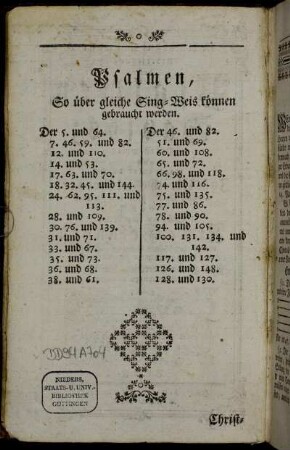 Psalmen,
So über gleiche Sing-Weis können
gebraucht werden.
Der 5. und 64.
7. 46. 59. und 82.
12. und 110.
14. und 53.
17. 63. und 70.
18. 32. 45. und 144.
24. 62. 95. 111. und
113.
28. und 109.
30. 76. und 139.
31. und 71.
33. und 67.
35. und 73.
36. und 68.
38. und 61.
Der 46. und 82.
51. und 69.
60. und 108.
65. und 72.
66. 98. und 118.
74. und 116.
75. und 135.
77. und 86.
78. und 90.
94. und 105.
100. 131. 134. und
142.
117. und 127.
126. und 148.
128. und 130.
DD94 A 704
NIEDERS.
STAATS- U. UNIV.-
BIBLIOTHEK
GÖTTINGEN
Christ-